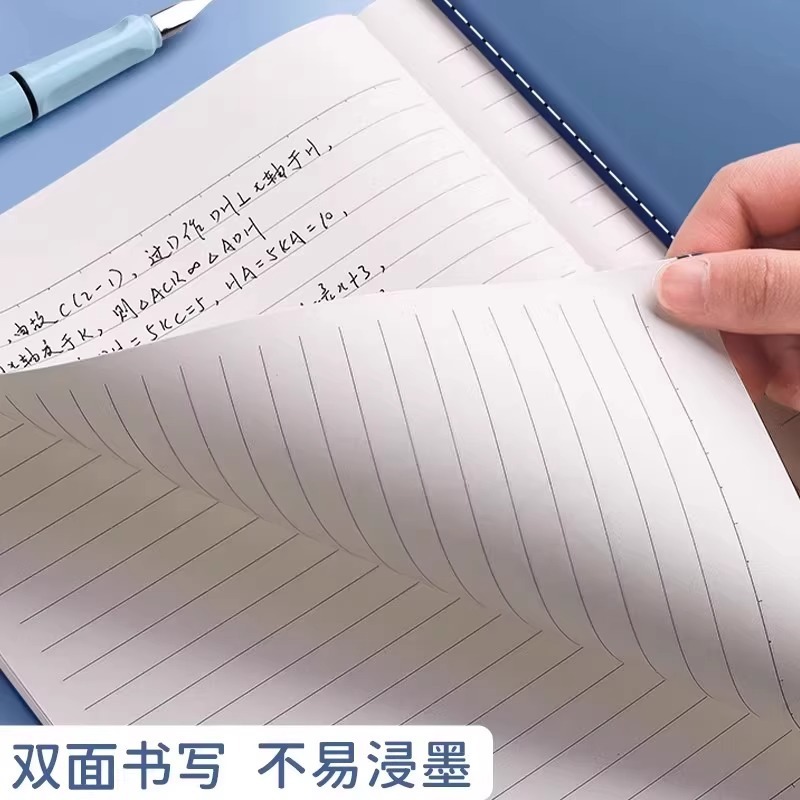 由故C(2-1),过D作DH⊥x轴于H,
x轴友于K,则△ACK∽△ADH
=5KC=5,HA=5KA=10,
x+3,
双面书写 不易浸墨